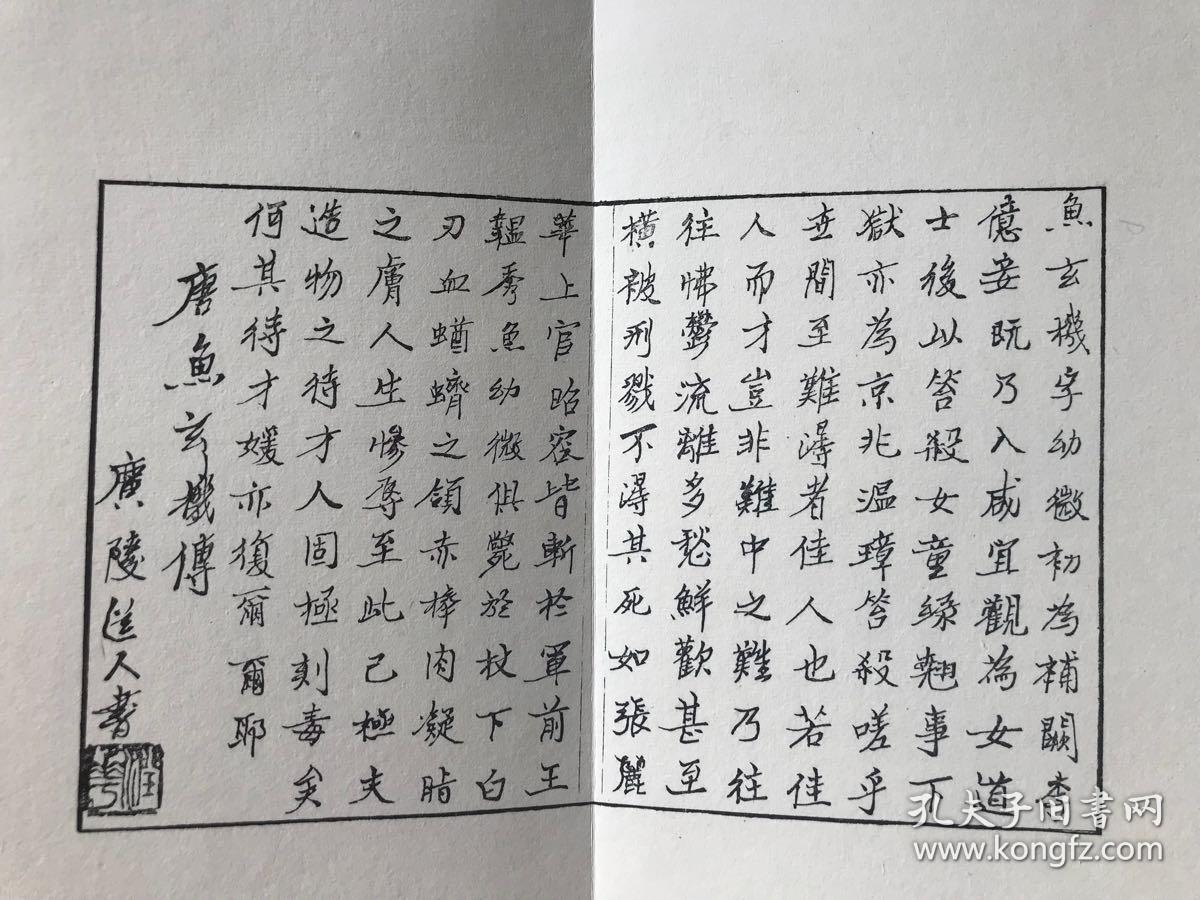 魚玄機字幼微初為補闕李
億妾既乃入咸宜觀為女道
士後以笞殺女童綠翹事下
獄亦為京兆溫璋笞殺嗟乎
世間至難得者佳人也若佳
人而才豈非難中之難乃往
往怫鬱流離多愁鮮歡甚至
橫被刑戮不得其死如張麗
華上官昭容皆斬於軍前王
韞秀魚幼微俱斃於杖下白
刃血蝤蠐之領赤棒肉凝脂
之膚人生慘辱至此已極夫
造物之待才人固極刻毒矣
何其待才媛亦復爾爾耶
唐魚玄機傳
廣陵 人書
孔夫子旧书网
www.kongfz.com